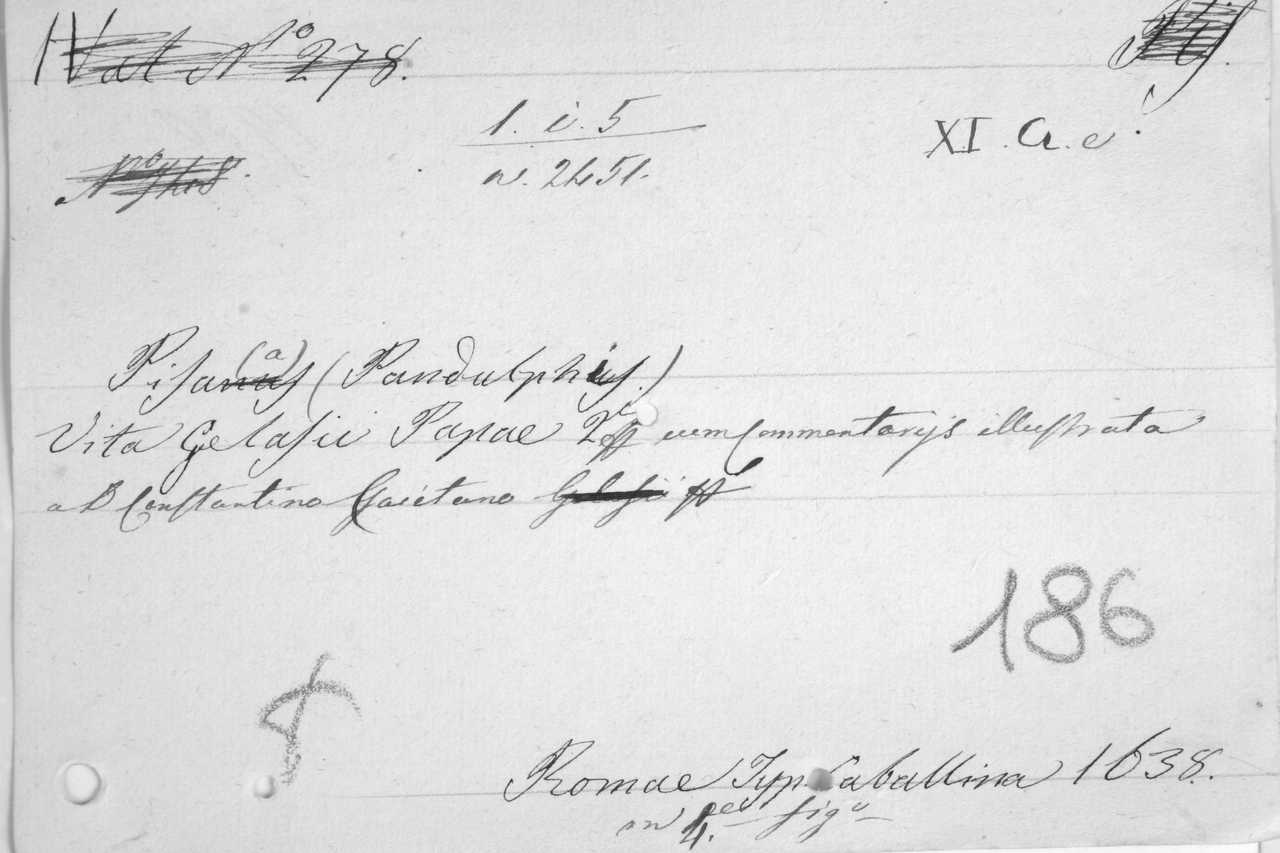 Vat N° 278.
1. i. 5
XI. a. e.
n. 2451.
Pisanus (a) (Pandulphus.)
Vita Gelasii Papae 2i cum Commentarijs illustrata
a D Constantino Gaietano Gelasii
186
Romae Typ Caballina 1638.
in 4. fig